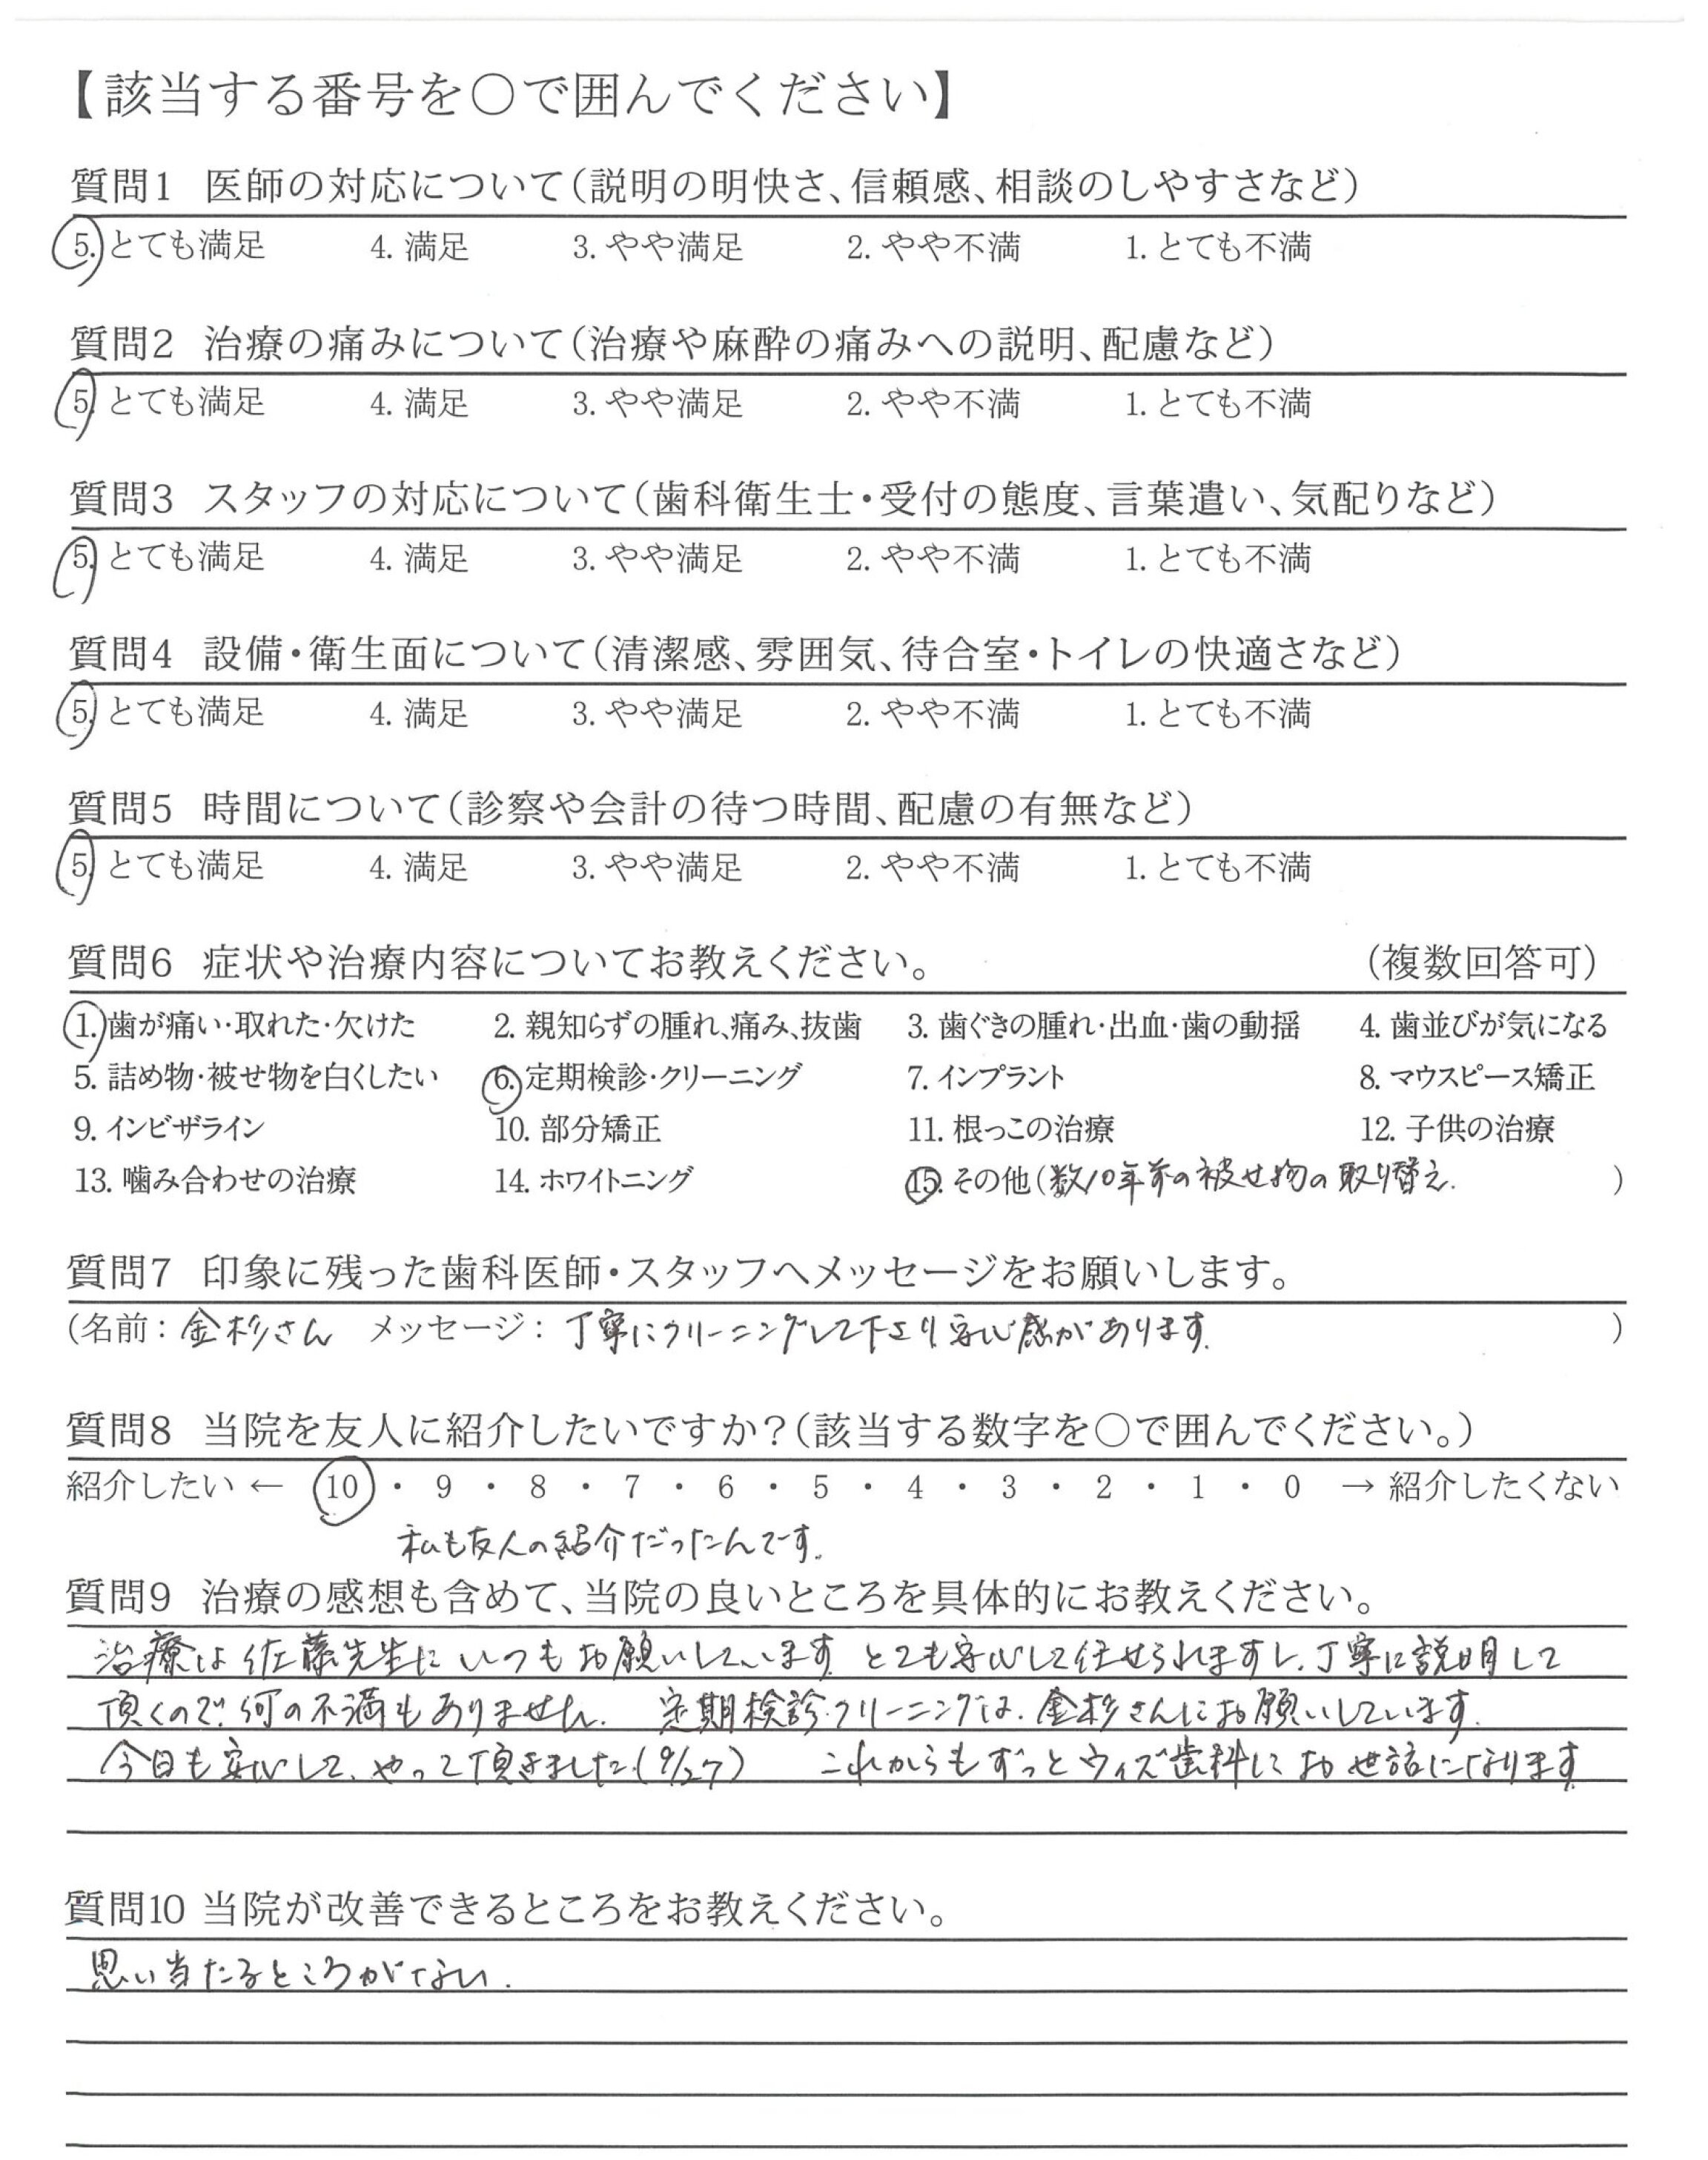 【該当する番号を○で囲んでください】
質問1 医師の対応について(説明の明快さ、信頼感、相談のしやすさなど)
5. とても満足 4. 満足 3. やや満足 2. やや不満 1. とても不満
質問2 治療の痛みについて(治療や麻酔の痛みへの説明、配慮など)
5. とても満足 4. 満足 3. やや満足 2. やや不満 1. とても不満
質問3 スタッフの対応について(歯科衛生士・受付の態度、言葉遣い、気配りなど)
5. とても満足 4. 満足 3. やや満足 2. やや不満 1. とても不満
質問4 設備・衛生面について(清潔感、雰囲気、待合室・トイレの快適さなど)
5. とても満足 4. 満足 3. やや満足 2. やや不満 1. とても不満
質問5 時間について(診察や会計の待つ時間、配慮の有無など)
5. とても満足 4. 満足 3. やや満足 2. やや不満 1. とても不満
質問6 症状や治療内容についてお教えください。 (複数回答可)
1. 歯が痛い・取れた・欠けた 2. 親知らずの腫れ、痛み、抜歯 3. 歯ぐきの腫れ・出血・歯の動揺 4. 歯並びが気になる
5. 詰め物・被せ物を白くしたい 6. 定期検診・クリーニング 7. インプラント 8. マウスピース矯正
9. インビザライン 10. 部分矯正 11. 根っこの治療 12. 子供の治療
13. 噛み合わせの治療 14. ホワイトニング 15. その他(数10年前の被せ物の取り替え. )
質問7 印象に残った歯科医師・スタッフへメッセージをお願いします。
(名前: 金杉さん メッセージ: 丁寧にクリーニングして下さり、安心感があります。 )
質問8 当院を友人に紹介したいですか?(該当する数字を○で囲んでください。)
紹介したい ← 10 ・ 9 ・ 8 ・ 7 ・ 6 ・ 5 ・ 4 ・ 3 ・ 2 ・ 1 ・ 0 → 紹介したくない
私も友人の紹介だったんです。
質問9 治療の感想も含めて、当院の良いところを具体的にお教えください。
治療は佐藤先生にいつもお願いしています。とても安心して任せられますし、丁寧に説明して
頂くので、何の不満もありません. 定期検診・クリーニングは、金杉さんにお願いしています.
今日も安心して、やって頂きました.(9/27) これからもずっとウィズ歯科にお世話になります
質問10 当院が改善できるところをお教えください。
思い当たるところがない.